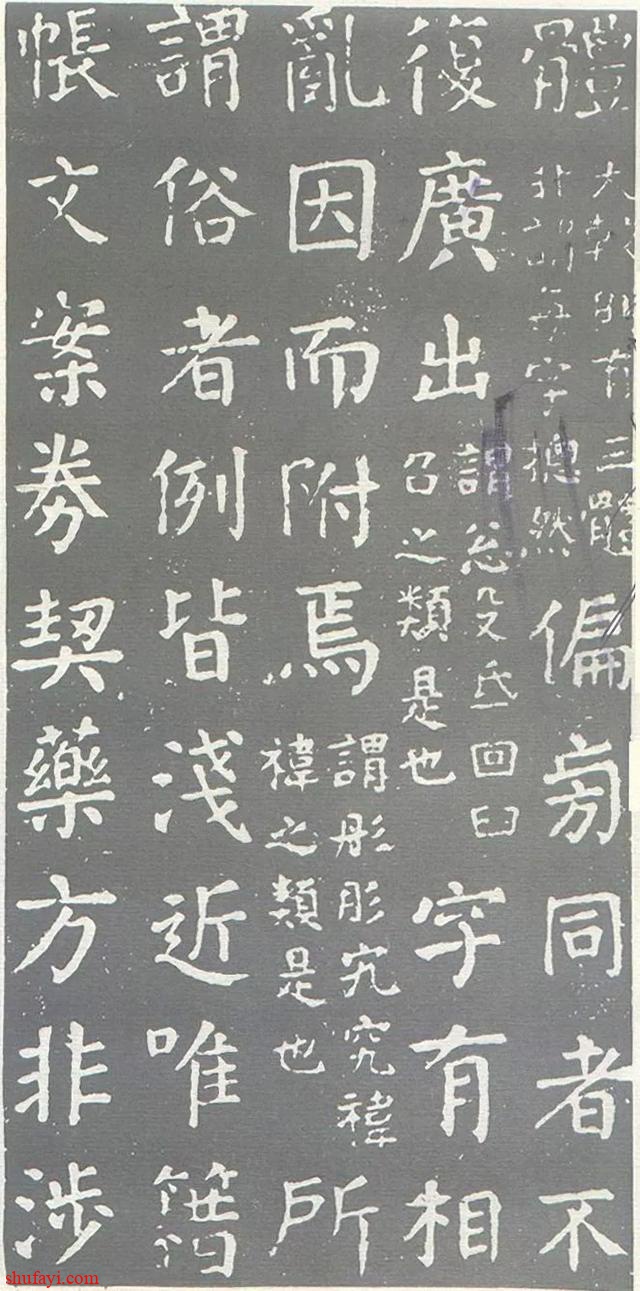 體大較則有三體非謂每字摠然偏旁同者不
復廣出謂忩殳氐回臼召之類是也字有相
亂因而附焉謂彤肜宄究禕褘之類是也所
謂俗者例皆淺近唯籍
帳文案券契藥方非涉
shufayi.com